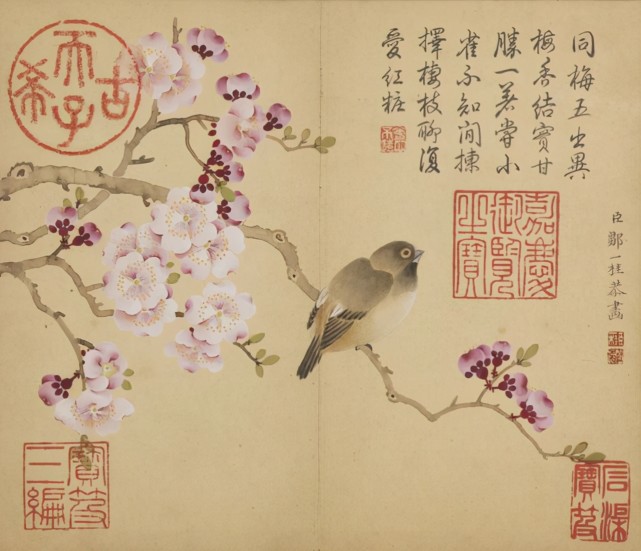 同梅五出異
梅香結實甘
勝一著嘗小
雀不知閒揀
擇棲枝聊復
愛紅粧
嘉慶御覽之寶
臣鄒一桂恭畫
古希天子
寶笈三編